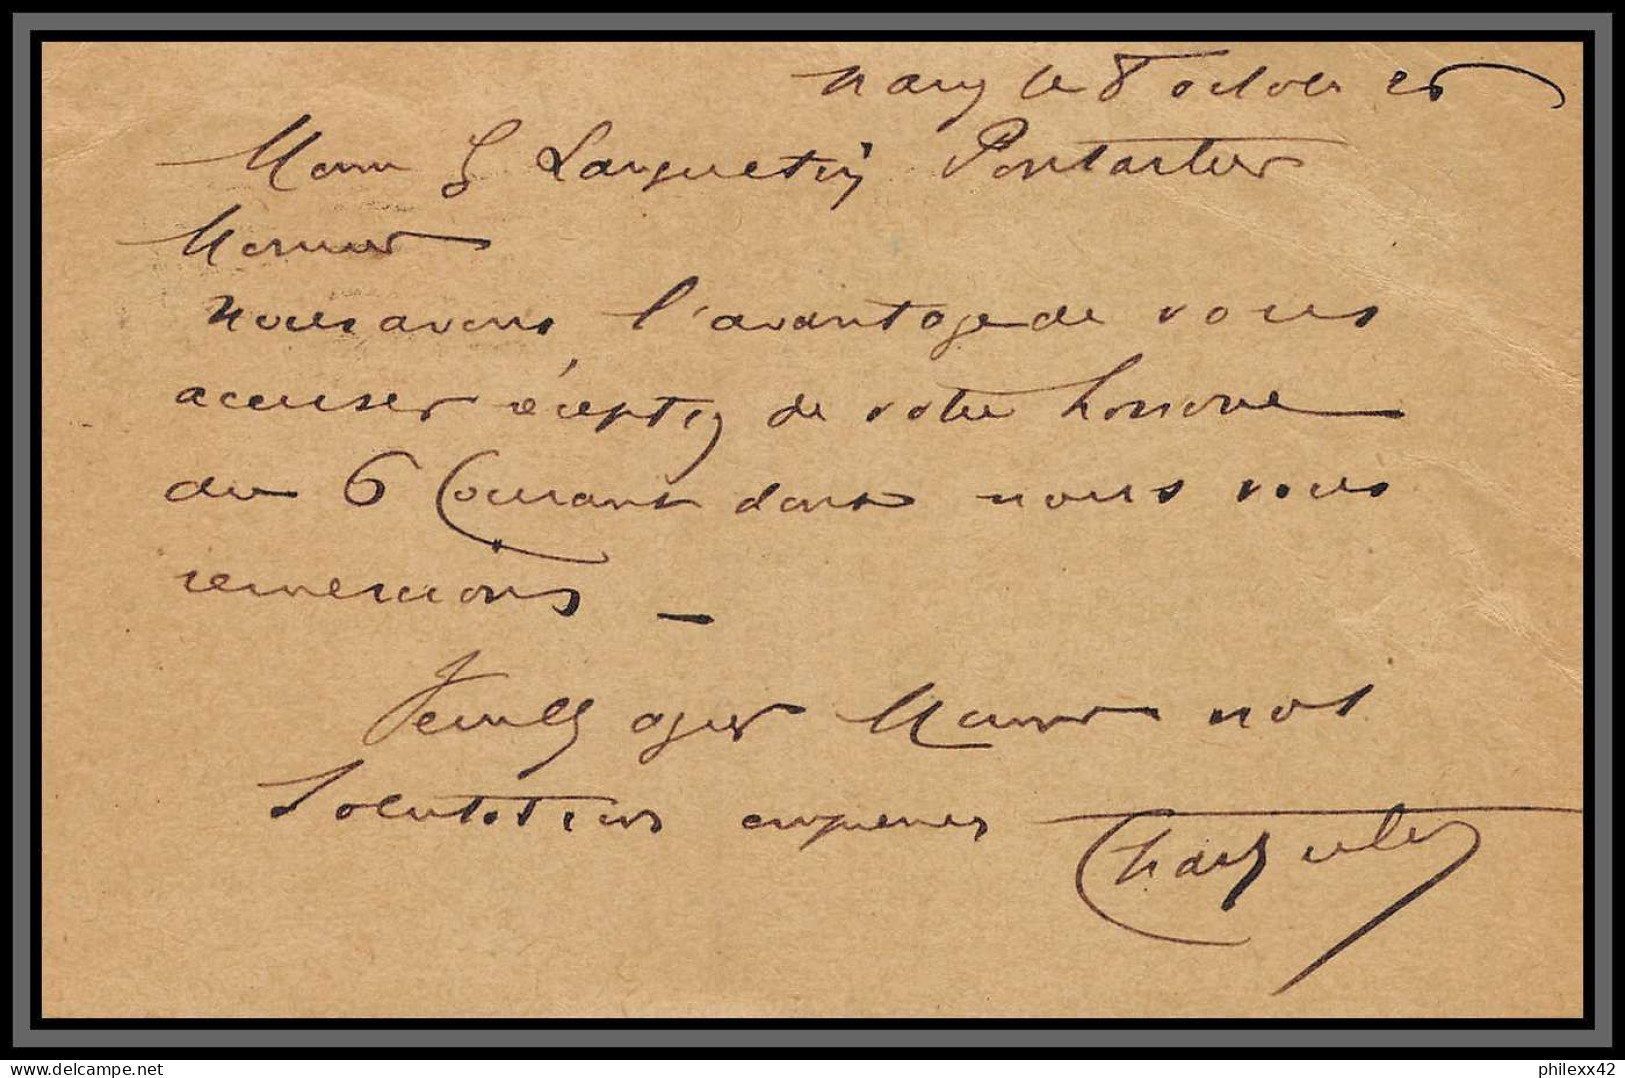 Nancy le 8 octobre
Larguetin Pontarlier
Monsieur
Nous avons l'avantage de vous
accuser réception de votre honorée
du 6 Courant dont nous vous
remercions _
Veuillez agréer Monsieur nos
Salutations empressées
philexx42